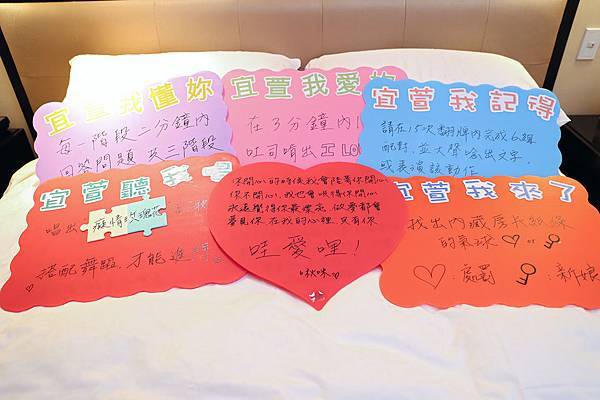 宜萱我懂妳
每一階段二分鐘內
回答問題 共三階段
宜萱我愛妳
在3分鐘內
吐司啃出 I LO
宜萱我記得
請在15次翻牌內完成6組
配對，並大聲唸出文字，
或表演該動作
宜萱聽我
唱出 癡情玫瑰花
搭配舞蹈，才能進
你開心的時候我會陪著你開心
你不開心，我也會哄得你開心
永遠覺得你最漂亮，做夢都會
夢見你 在我的心裡，只有你
哇愛哩！
宜萱我來了
找出內藏房卡紙條
的氣球 ♡ or
♡：處罰 ：新娘